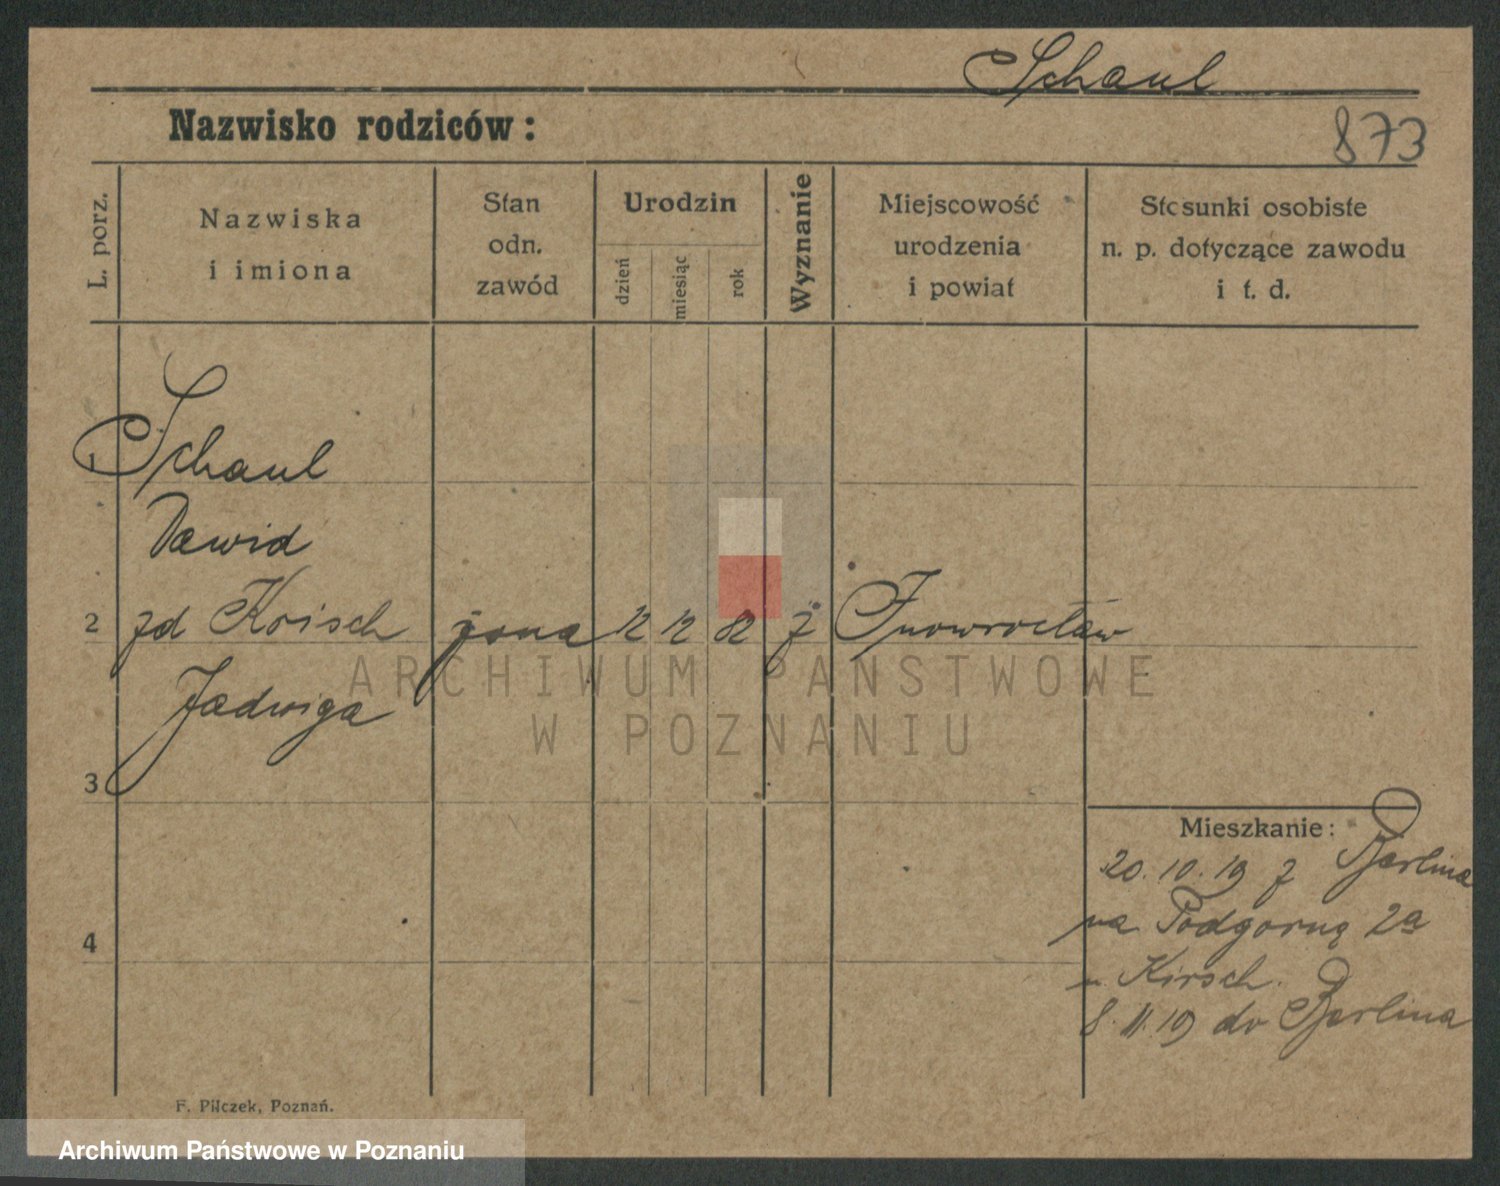 Schaul
Nazwisko rodziców:
873
L. porz.
Nazwiska
i imiona
Stan
odn.
zawód
Urodzin
dzień
miesiąc
rok
Wyznanie
Miejscowość
urodzenia
i powiat
Stosunki osobiste
n. p. dotyczące zawodu
i t. d.
1 Schaul
Dawid
2 zd Krisch żona 12 12 82 ż Inowrocław
Jadwiga
3
4
Mieszkanie:
20.10.19 z Berlina
na Podgorną 2a
u Kirsch.
8.11.19 do Berlina
F. Pilczek, Poznań.
ARCHIWUM PAŃSTWOWE
W POZNANIU
Archiwum Państwowe w Poznaniu